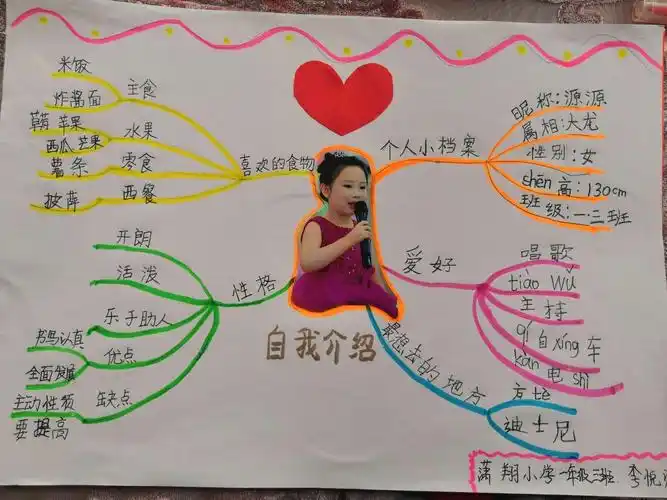 米饭
炸酱面
主食
草莓 苹果
西瓜 芒果
水果
薯条
零食
披萨
西餐
喜欢的食物
个人小档案
昵称:源源
属相:大龙
性别:女
shēn高:130cm
班级:一.三班
开朗
活泼
乐于助人
书写认真
全面发展
优点
主动性须
要提高
缺点
性格
自我介绍
爱好
唱歌
tiào wǔ
主持
qí自xíng车
kàn电shì
最想去的地方
方tè
迪士尼
潇翔小学一年级三班 李悦